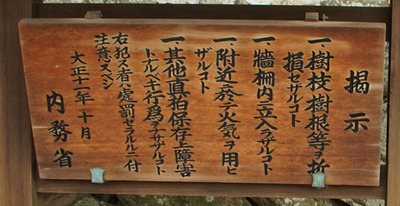 掲示
一、樹枝樹根等ヲ折
損セザルコト
一、牆柵内ニ立入ラザルコト
一、附近ニ於テ火気ヲ用ヒ
ザルコト
一、其他眞柏保存上障害
トナルベキ行為ヲナサザルコト
右犯ス者ハ處罰セラルルニ付
注意スベシ
大正十一年十月
内務省